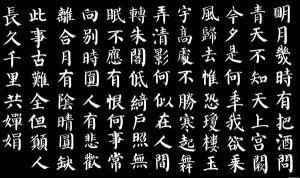 明月幾時有把酒問
青天不知天上宮闕
今夕是何年我欲乘
風歸去惟恐瓊樓玉
宇高處不勝寒起舞
弄清影何似在人間
轉朱閣低綺戶照無
眠不應有恨何事常
向別時圓人有悲歡
離合月有陰晴圓缺
此事古難全但願人
長久千里共嬋娟